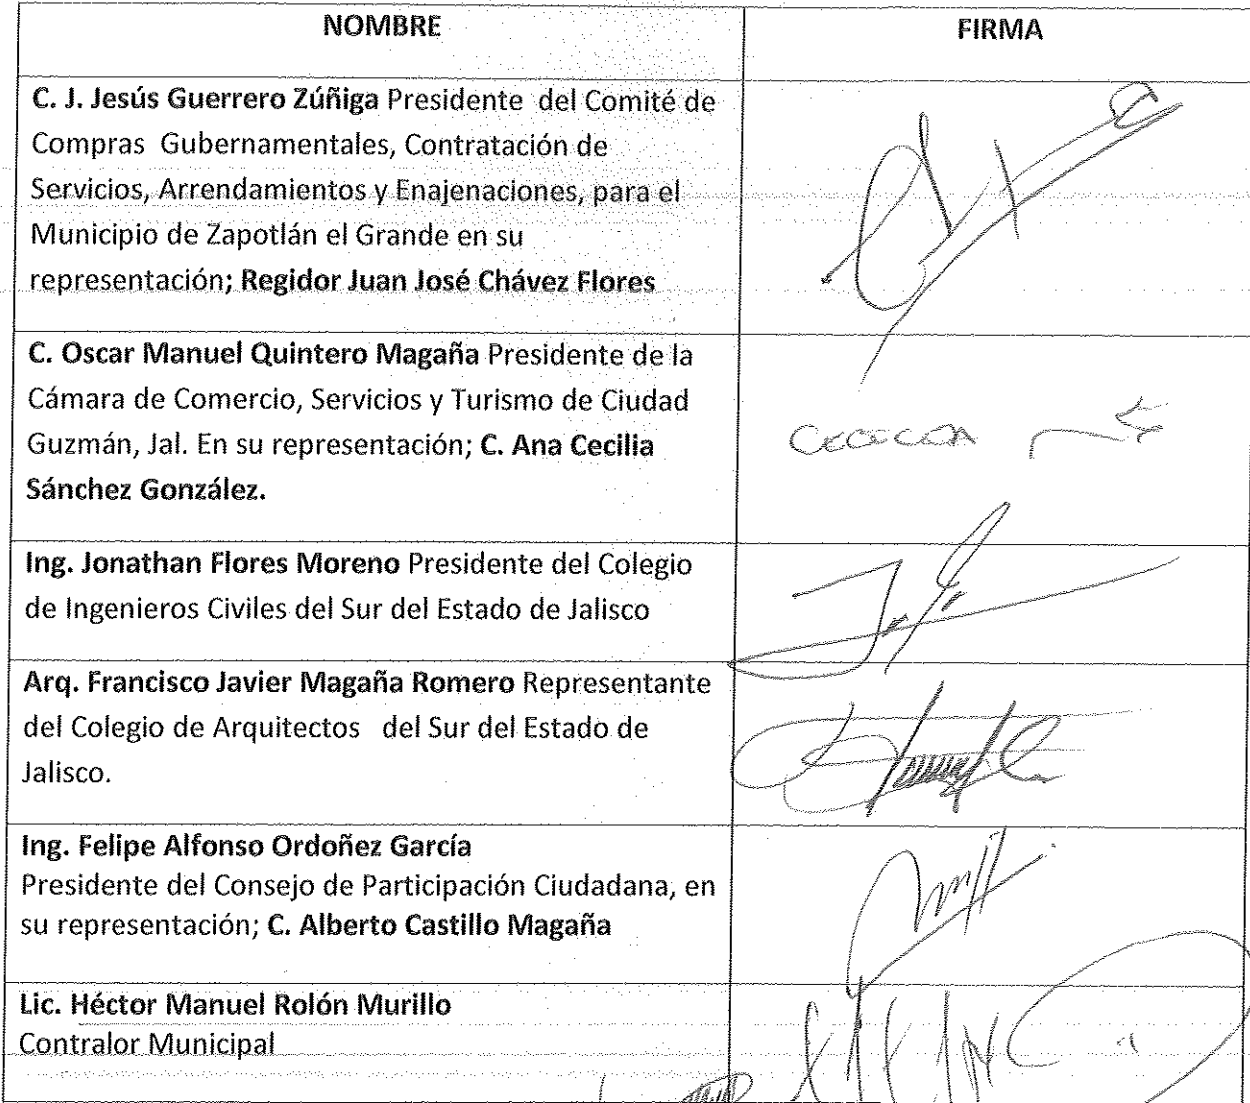 NOMBRE
FIRMA
C. J. Jesús Guerrero Zúñiga Presidente del Comité de
Compras Gubernamentales, Contratación de
Servicios, Arrendamientos y Enajenaciones, para el
Municipio de Zapotlán el Grande en su
representación; Regidor Juan José Chávez Flores
C. Oscar Manuel Quintero Magaña Presidente de la
Cámara de Comercio, Servicios y Turismo de Ciudad
Guzmán, Jal. En su representación; C. Ana Cecilia
Sánchez González.
Ing. Jonathan Flores Moreno Presidente del Colegio
de Ingenieros Civiles del Sur del Estado de Jalisco
Arq. Francisco Javier Magaña Romero Representante
del Colegio de Arquitectos del Sur del Estado de
Jalisco.
Ing. Felipe Alfonso Ordoñez García
Presidente del Consejo de Participación Ciudadana, en
su representación; C. Alberto Castillo Magaña
Lic. Héctor Manuel Rolón Murillo
Contralor Municipal